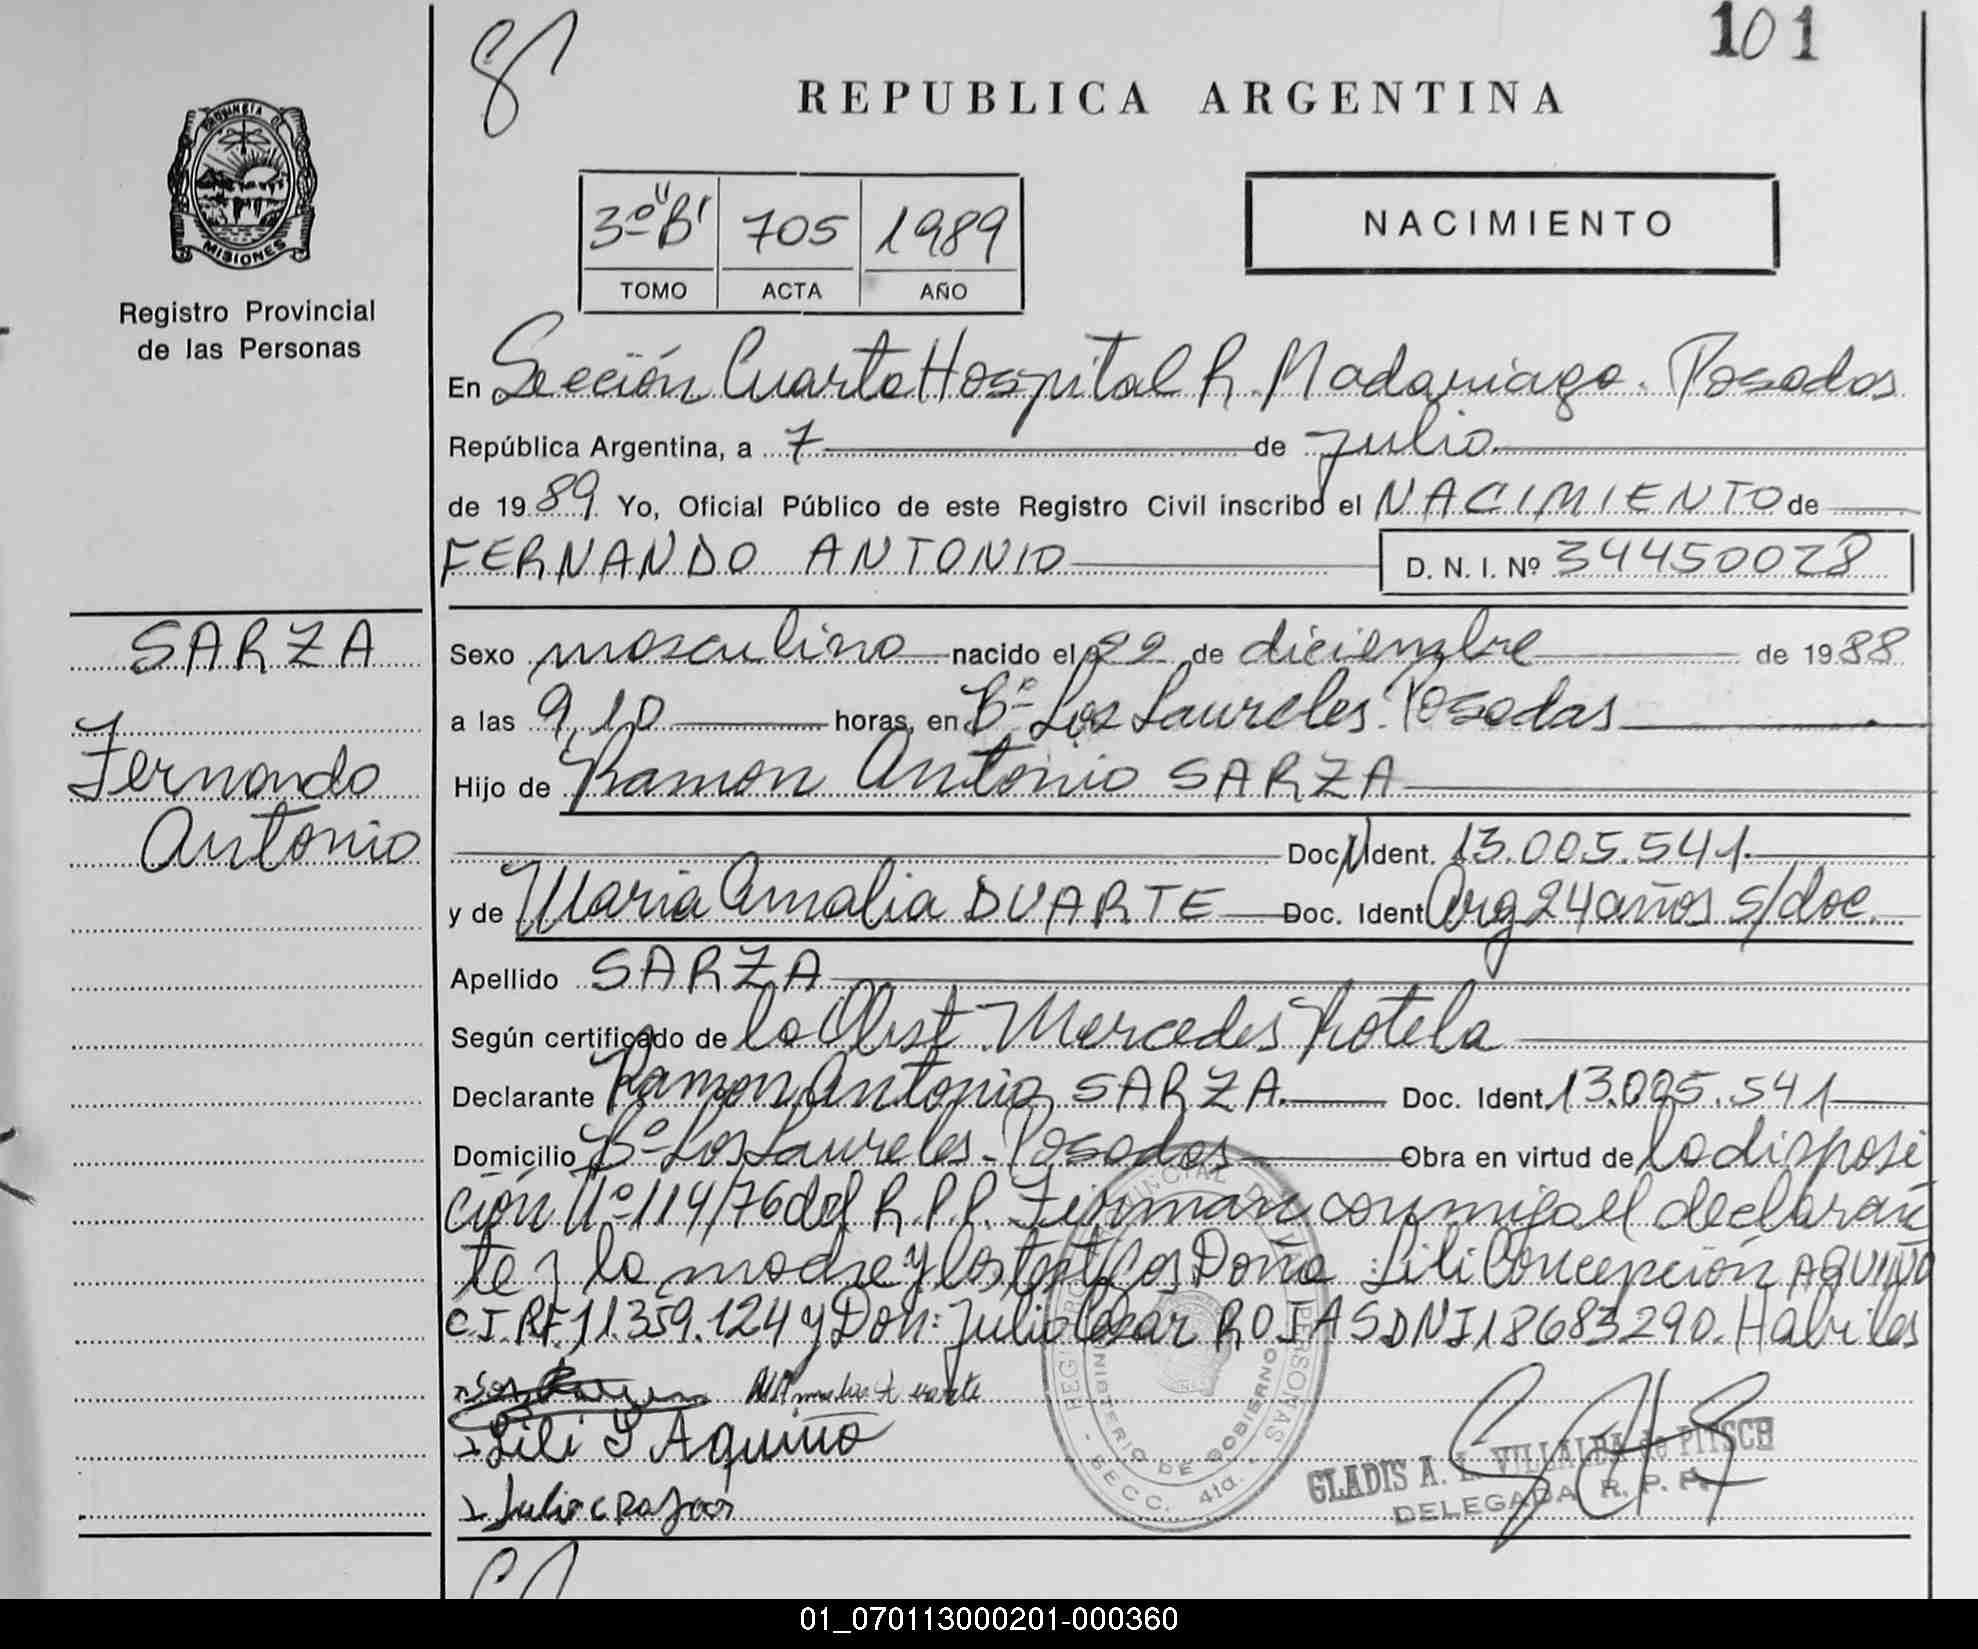 101
REPUBLICA ARGENTINA
PROVINCIA DE
MISIONES
Registro Provincial
de las Personas
3º "B" 705 1989
TOMO ACTA AÑO
NACIMIENTO
En Sección Cuarta Hospital R. Madariaga. Posadas
República Argentina, a 7 de julio
de 1989 Yo, Oficial Público de este Registro Civil inscribo el NACIMIENTO de
FERNANDO ANTONIO D. N. I. Nº 34450028
SARZA
Fernando
Antonio
Sexo masculino nacido el 22 de diciembre de 1988
a las 9,10 horas, en Bº Los Laureles. Posadas
Hijo de Ramon Antonio SARZA
Doc. Ident. 13.005.541.
y de Maria Amalia DUARTE Doc. Ident Arg 24 años s/doc.
Apellido SARZA
Según certificado de la Obst. Mercedes Rotela
Declarante Ramon Antonio SARZA. Doc. Ident. 13.005.541
Domicilio Bº Los Laureles. Posadas Obra en virtud de la disposi
ción Nº 114/76 del R.P.P. Firman conmigo el declaran
te, la madre y los testigos Doña: Lili Concepción AQUINO
C.I. RF. 11.359.124 y Don: Julio Cesar ROJAS DNI 18683290. Habiles
Lili Aquino
Julio C Rojas
REGISTRO PROVINCIAL DE LAS PERSONAS
MINISTERIO DE GOBIERNO
- SECC. 4ta. -
GLADIS A. L. VILLALBA de PITSCH
DELEGADA R. P. P.
01_070113000201-000360